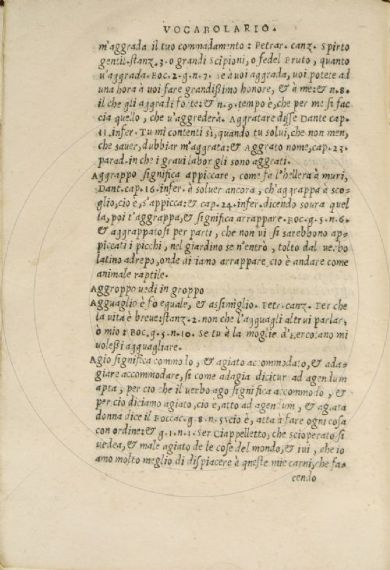 VOCABOLARIO.
m'aggrada il tuo commadamento: Petrar. canz. Spirto
gentil. stanz. 3. o grandi Scipioni, o fedel Bruto, quanto
u'aggrada. Boc. 2. g. n. 7. Se à uoi aggrada, uoi potete ad
una hora à uoi fare grandißimo honore, & à me: & n. 8.
il che gli aggradì forte: & n. 9. tempo è, che per me si fac
cia quello, che u'aggrederà. Aggratare disse Dante cap.
11. infer. Tu mi contenti sì, quando tu solui, che non men,
che sauer, dubbiar m'aggrata: & Aggrato nome, cap. 23.
parad. in che i graui labor gli sono aggrati.
Aggrappo significa appiccare, come fa l'hellera à muri,
Dant. cap. 16. infer. à soluer ancora, ch'aggrappa à sco=
glio, cio è, s'appicca: & cap. 24. infer. dicendo soura quel
la, poi t'aggrappa, & significa arrappare. Boc. g. 5. n. 6.
& aggrappatosi per parti, che non ui si sarebbono ap=
piccati i picchi, nel giardino se n'entrò, tolto dal uerbo
latino adrepo, onde diciamo arrappare cio è andare come
animale reptile.
Aggroppo uedi in groppo
Agguaglio è fo eguale, & assimiglio. Petr. canz. Per che
la uita è breue: stanz. 2. non che l'agguagli altrui parlar,
ò mio: Boc. g. 5. n. 10. Se tu à la moglie d'Ercolano mi
uolessi agguagliare.
Agio significa commodo, & agiato accommodato, & ada=
giare accommodare, si come adagia dicitur ad agendum
apta, per cio che il uerbo ago significa accommodo, &
per cio diciamo agiato, cio è, atto ad agendum, & agiata
donna dice il Boccac. g. 8. n. 5. cio è, atta à fare ogni cosa
con ordine: & g. 1. n. 1. Ser Ciappelletto, che scioperato si
uedea, & male agiato de le cose del mondo, & iui, che io
amo molto meglio di dispiacere à queste mie carni, che fa=
cendo